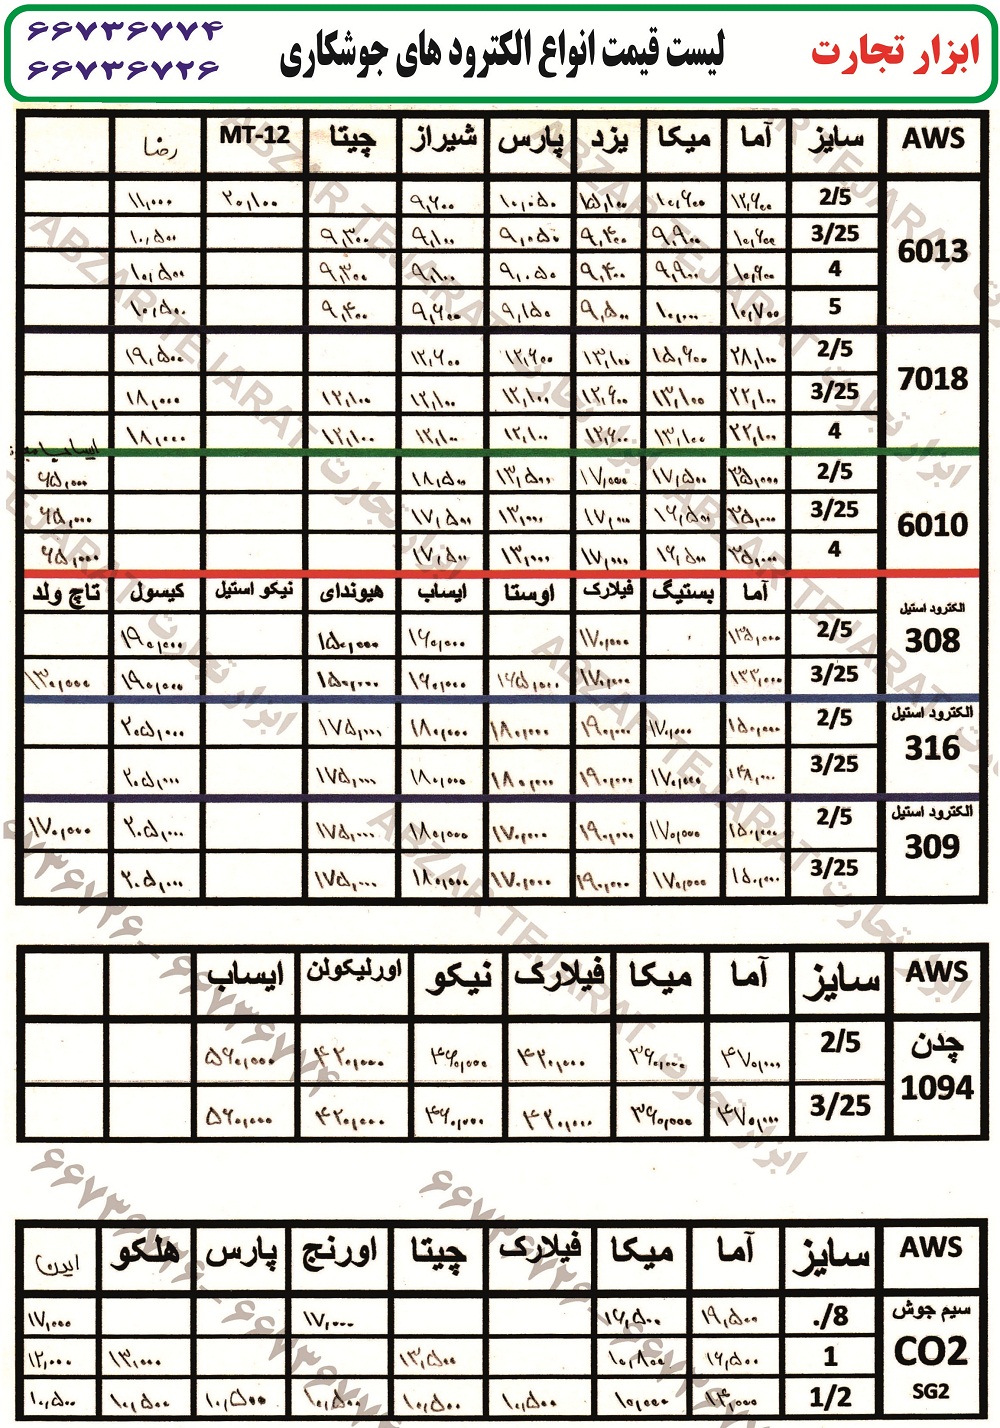 ابزار تجارت لیست قیمت انواع الکترود های جوشکاری ۶۶۷۳۶۷۷۴
۶۶۷۳۶۷۲۶
AWS سایز آما میکا یزد پارس شیراز چیتا MT-12 رضا
6013
2/5 ۱۲,۶۰۰ ۱۰,۶۰۰ ۱۵,۱۰۰ ۱۰,۰۵۰ ۹,۶۰۰ ۲۰,۱۰۰ ۱۱,۰۰۰
3/25 ۱۰,۶۰۰ ۹,۹۰۰ ۹,۴۰۰ ۹,۰۵۰ ۹,۱۰۰ ۹,۳۰۰ ۱۰,۵۰۰
4 ۱۰,۶۰۰ ۹,۹۰۰ ۹,۴۰۰ ۹,۰۵۰ ۹,۱۰۰ ۹,۳۰۰ ۱۰,۵۰۰
5 ۱۰,۷۰۰ ۱۰,۰۰۰ ۹,۵۰۰ ۹,۱۵۰ ۹,۶۰۰ ۹,۴۰۰ ۱۰,۵۰۰
7018
2/5 ۲۸,۱۰۰ ۱۵,۶۰۰ ۱۳,۱۰۰ ۱۲,۶۰۰ ۱۲,۶۰۰ ۱۹,۵۰۰
3/25 ۲۲,۱۰۰ ۱۳,۱۰۰ ۱۲,۶۰۰ ۱۲,۱۰۰ ۱۲,۱۰۰ ۱۲,۱۰۰ ۱۸,۰۰۰
4 ۲۲,۱۰۰ ۱۳,۱۰۰ ۱۲,۶۰۰ ۱۲,۱۰۰ ۱۲,۱۰۰ ۱۲,۱۰۰ ۱۸,۰۰۰
6010
2/5 ۳۵,۰۰۰ ۱۷,۵۰۰ ۱۷,۰۰۰ ۱۳,۵۰۰ ۱۸,۵۰۰ ۶۵,۰۰۰
3/25 ۳۵,۰۰۰ ۱۶,۵۰۰ ۱۷,۰۰۰ ۱۳,۰۰۰ ۱۷,۵۰۰ ۶۵,۰۰۰
4 ۳۵,۰۰۰ ۱۶,۵۰۰ ۱۷,۰۰۰ ۱۳,۰۰۰ ۱۷,۵۰۰ ۶۵,۰۰۰
آما بستیگ فیلارک اوستا ایساب هیوندای نیکو استیل کیسول تاچ ولد
الکترود استیل
308
2/5 ۱۳۵,۰۰۰ ۱۷۰,۰۰۰ ۱۶۰,۰۰۰ ۱۵۰,۰۰۰ ۱۹۰,۰۰۰
3/25 ۱۳۳,۰۰۰ ۱۷۰,۰۰۰ ۱۶۵,۰۰۰ ۱۶۰,۰۰۰ ۱۵۰,۰۰۰ ۱۹۰,۰۰۰ ۱۳۰,۰۰۰
الکترود استیل
316
2/5 ۱۵۰,۰۰۰ ۱۷۰,۰۰۰ ۱۹۰,۰۰۰ ۱۸۰,۰۰۰ ۱۸۰,۰۰۰ ۱۷۵,۰۰۰ ۲۰۵,۰۰۰
3/25 ۱۴۸,۰۰۰ ۱۷۰,۰۰۰ ۱۹۰,۰۰۰ ۱۸۰,۰۰۰ ۱۸۰,۰۰۰ ۱۷۵,۰۰۰ ۲۰۵,۰۰۰
الکترود استیل
309
2/5 ۱۵۰,۰۰۰ ۱۷۰,۰۰۰ ۱۹۰,۰۰۰ ۱۷۰,۰۰۰ ۱۸۰,۰۰۰ ۱۷۵,۰۰۰ ۲۰۵,۰۰۰ ۱۷۰,۰۰۰
3/25 ۱۵۰,۰۰۰ ۱۷۰,۰۰۰ ۱۹۰,۰۰۰ ۱۷۰,۰۰۰ ۱۸۰,۰۰۰ ۱۷۵,۰۰۰ ۲۰۵,۰۰۰
AWS سایز آما میکا فیلارک نیکو اورلیکولن ایساب
چدن
1094
2/5 ۴۷۰,۰۰۰ ۳۶۰,۰۰۰ ۴۲۰,۰۰۰ ۴۶۰,۰۰۰ ۴۲۰,۰۰۰ ۵۶۰,۰۰۰
3/25 ۴۷۰,۰۰۰ ۳۶۰,۰۰۰ ۴۲۰,۰۰۰ ۴۶۰,۰۰۰ ۴۲۰,۰۰۰ ۵۶۰,۰۰۰
AWS سایز آما میکا فیلارک چیتا اورنج پارس هلکو
سیم جوش
CO2
SG2
./8 ۱۹,۵۰۰ ۱۶,۵۰۰ ۱۷,۰۰۰ ۱۷,۰۰۰
1 ۱۶,۵۰۰ ۱۰,۸۰۰ ۱۳,۵۰۰ ۱۳,۰۰۰ ۱۲,۰۰۰
1/2 ۱۴,۰۰۰ ۱۰,۰۰۰ ۱۰,۵۰۰ ۱۰,۵۰۰ ۱۰,۵۰۰ ۱۰,۵۰۰ ۱۰,۵۰۰ ۱۰,۵۰۰
ABZAR TEJARAT ابزار تجارت
۶۶۷۳۶۷۲۶--۶۶۷۳۶۷۷۴